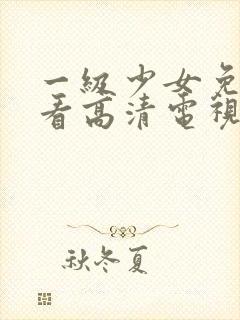 一級少女免
看高清電視
秋冬夏